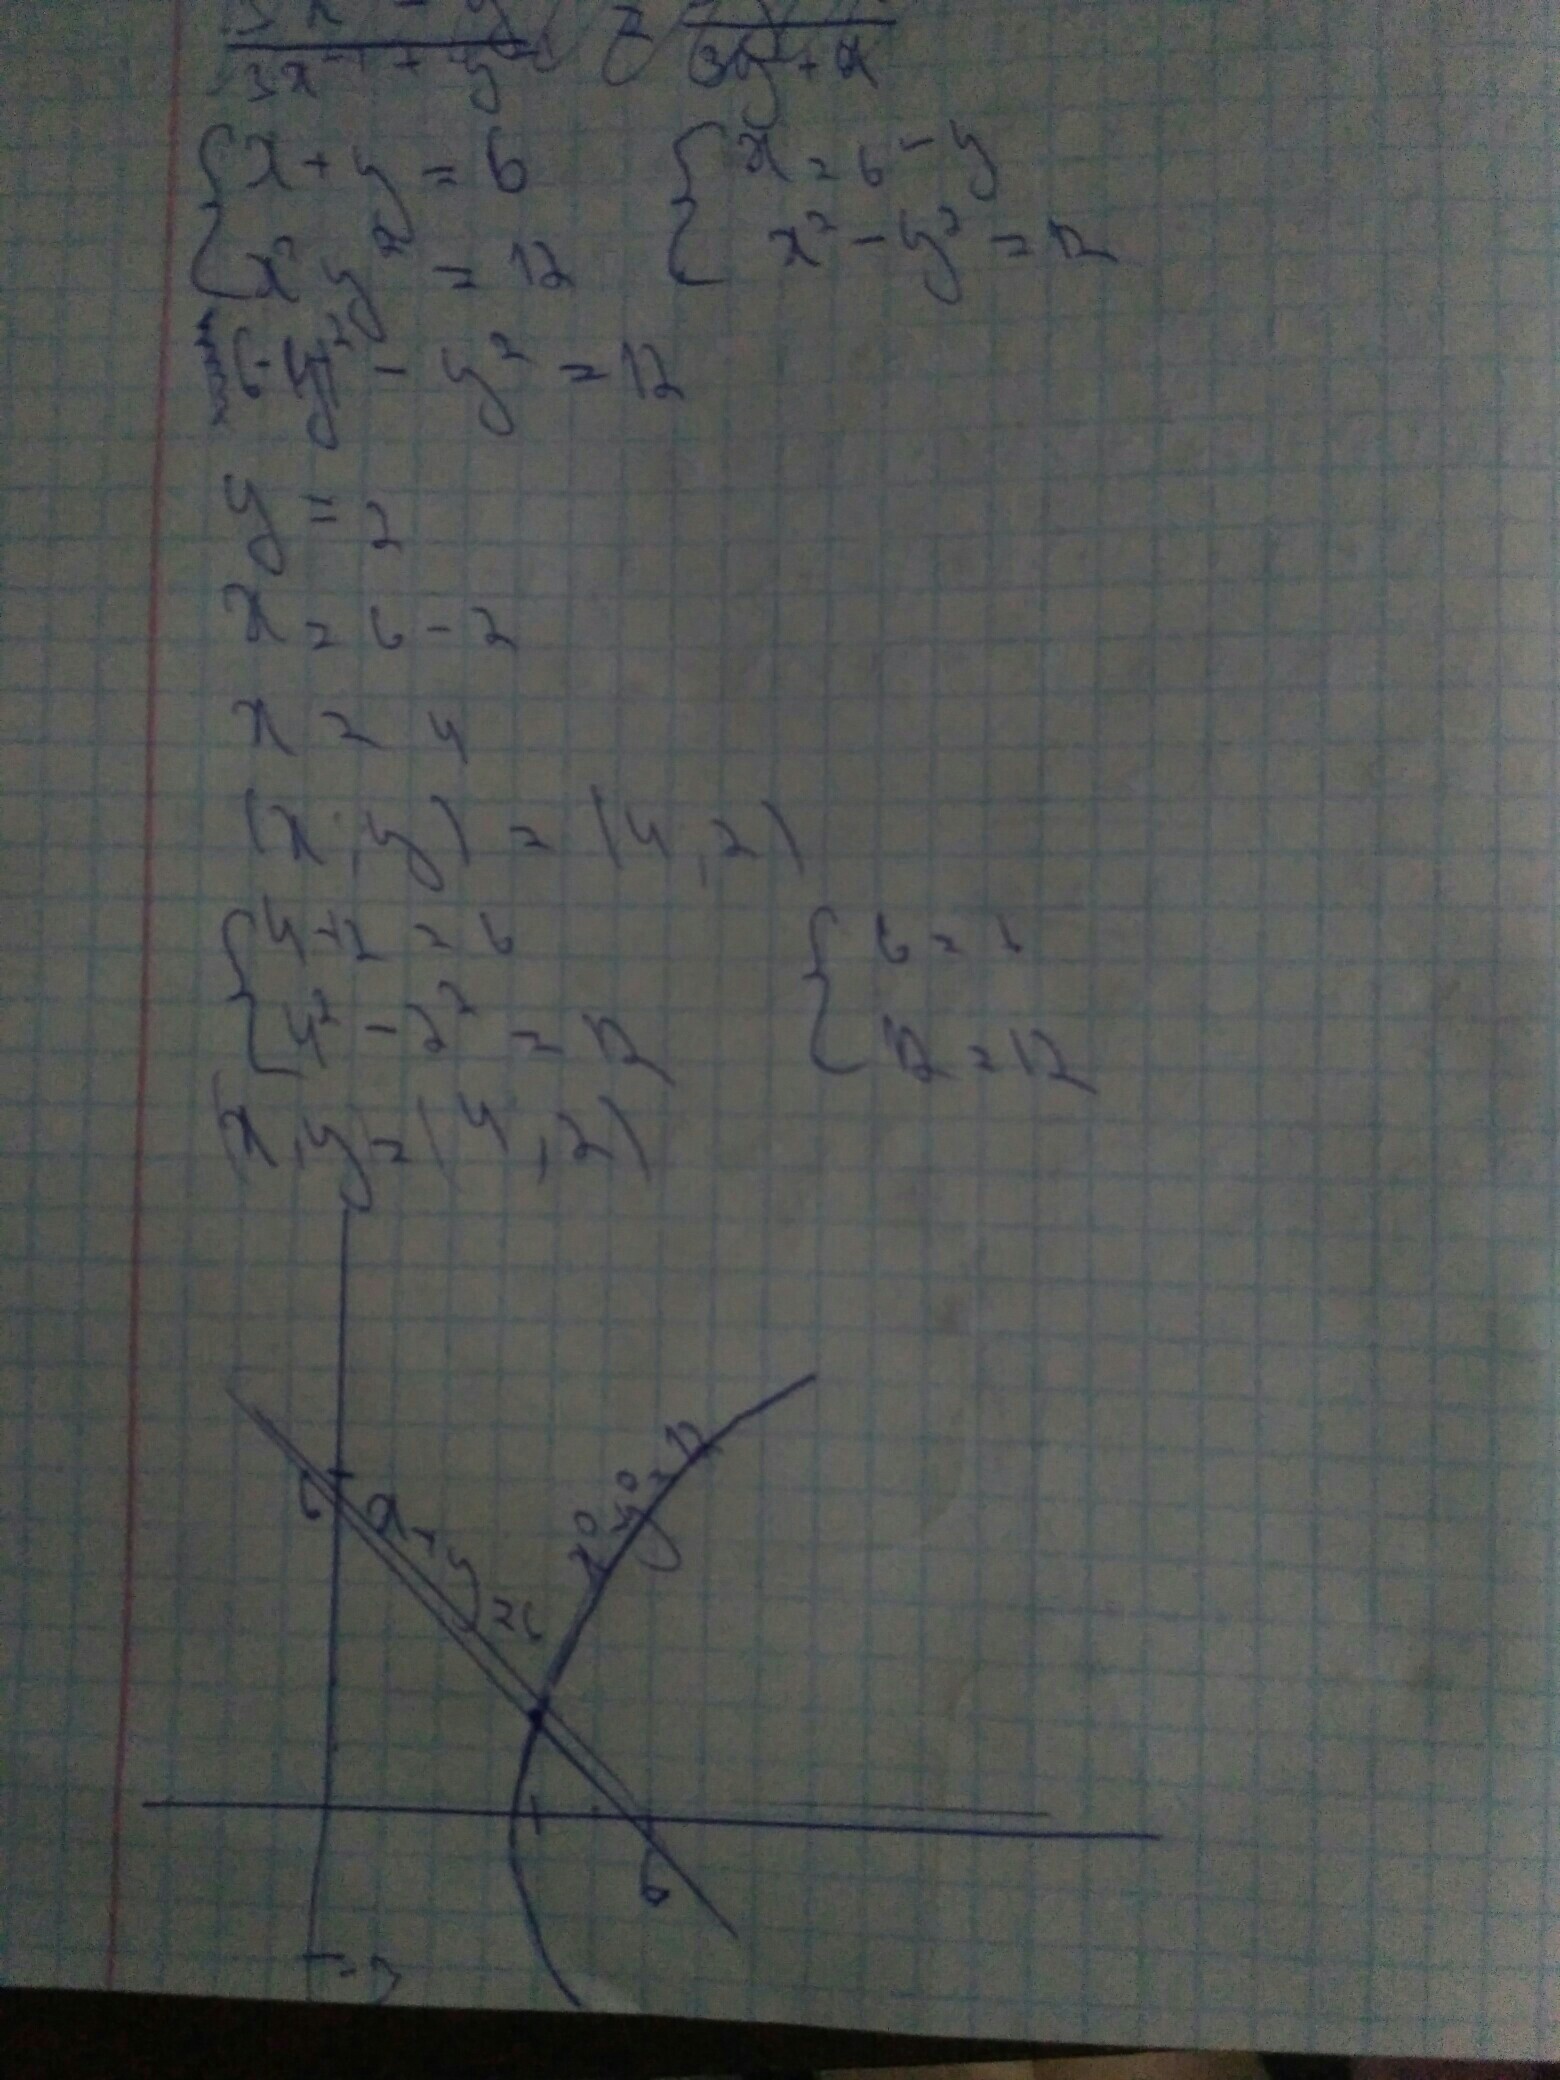 3x⁻¹ + y
3y + x
{ x + y = 6 { x = 6 - y
x² y² = 12 x² - y² = 12
6 - y² - y² = 12
y = 2
x = 6 - 2
x = 4
(x, y) = (4, 2)
{ 4 + 2 = 6 { 6 = 6
4² - 2² = 12 12 = 12
(x, y = (4, 2)
6
x + y = 6
x² - y² = 12
6
-3